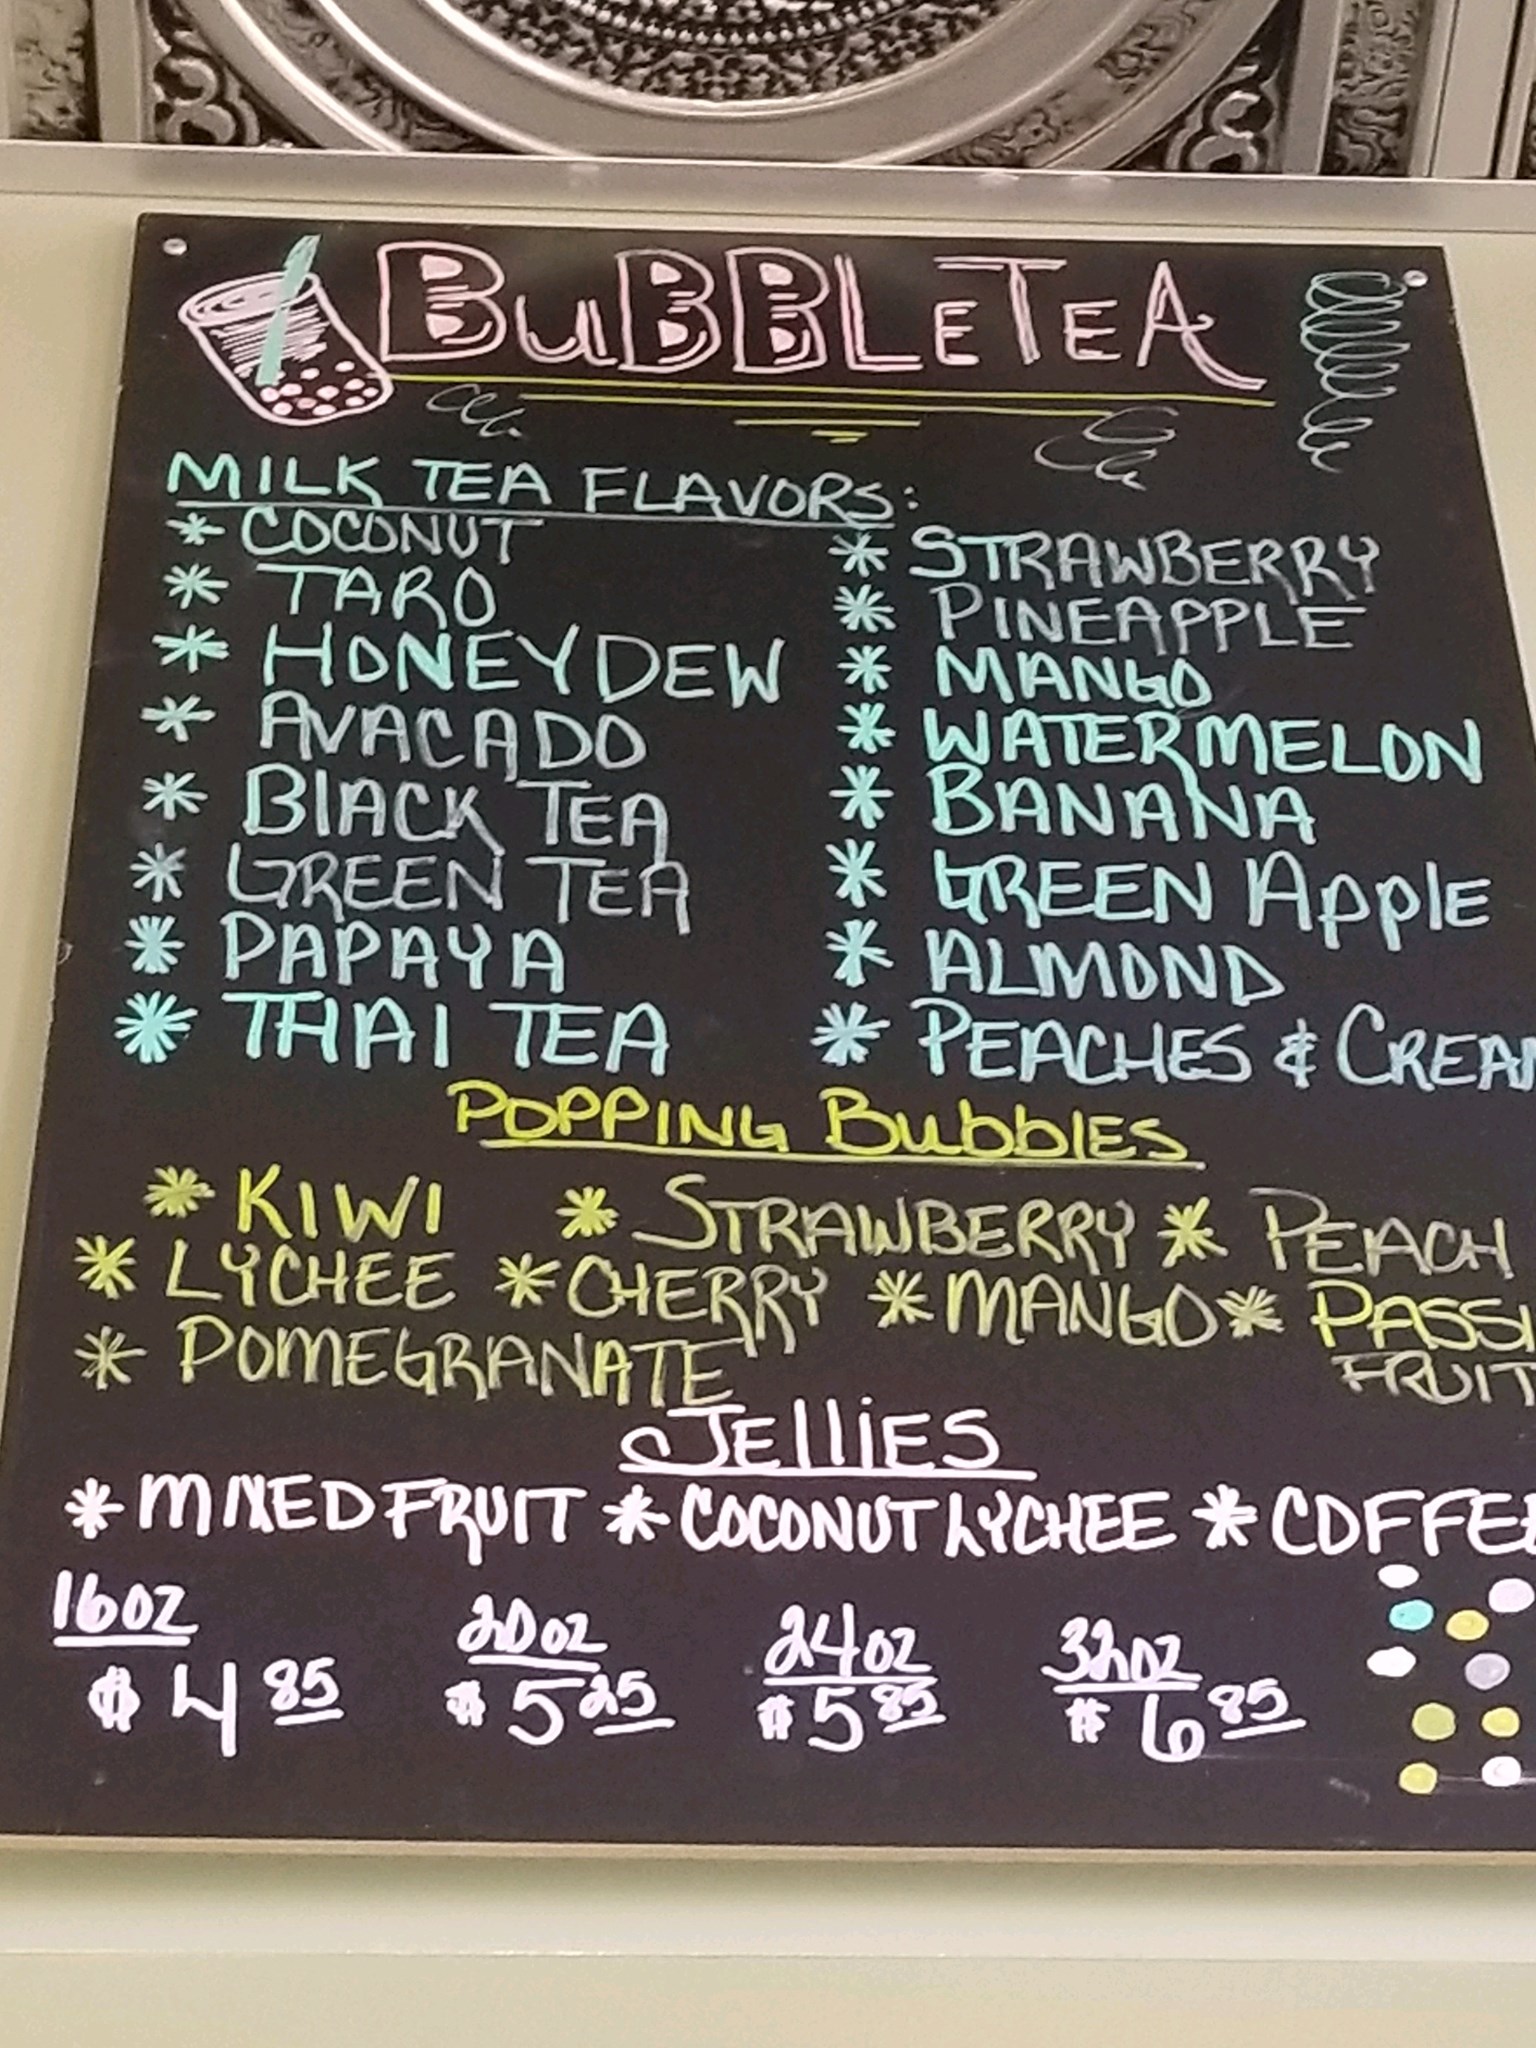 BuBBLeTeA
MILK TEA FLAVORS:
* COCONUT
* TARO
* HONEYDEW
* AVACADO
* BlACK TEA
* GREEN TEA
* PAPAYA
* THAI TEA
* STRAWBERRY
* PINEAPPLE
* MANGO
* WATERMELON
* BANANA
* GREEN Apple
* ALMOND
* PEACHES & CREAM
POPPING BubblES
* KIWI * STRAWBERRY * PEACH
* LYCHEE * CHERRY * MANGO * PASSI
* POMEGRANATE FRUIT
JElliES
* MIXED FRUIT * COCONUT LYCHEE * COFFEE
16oz 20oz 24oz 32oz
$4 85 $5 25 $5 85 $6 85